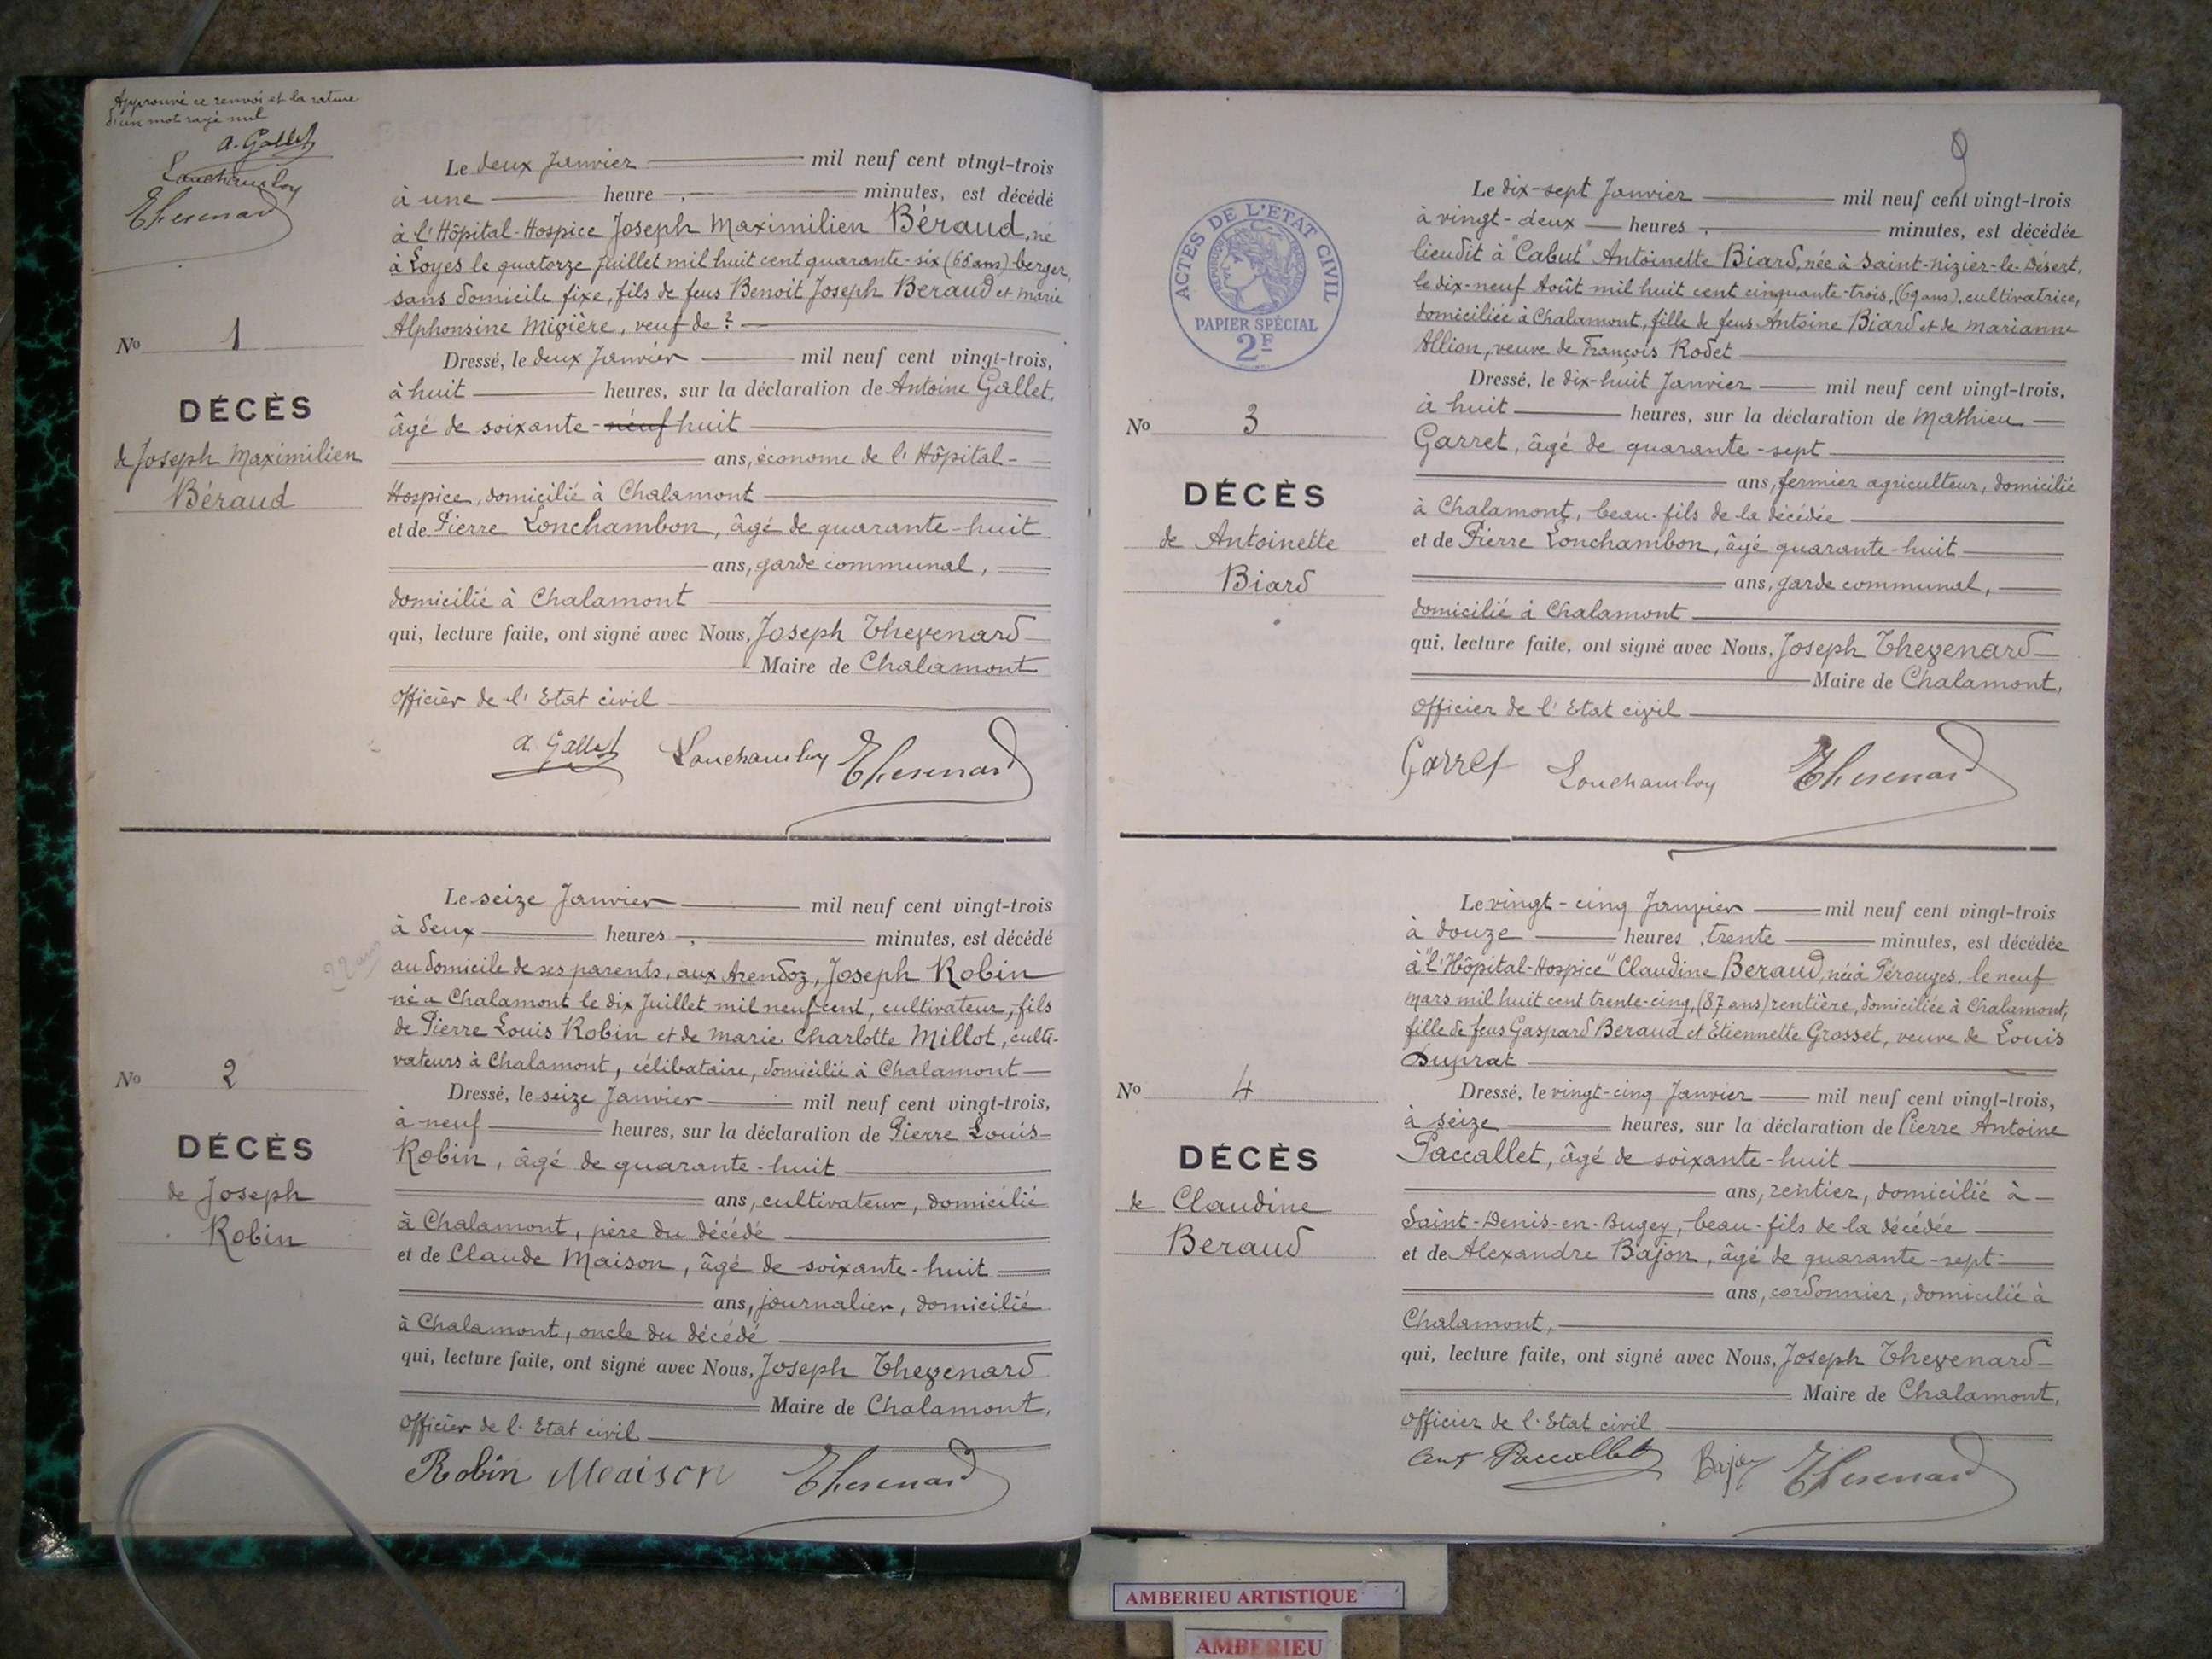 Approuvé ce renvoi et la rature
d'un mot rayé nul
A. Gallet
Lonchambon
Thevenard
Le deux Janvier mil neuf cent vingt-trois
à une heure minutes, est décédé
à l'Hôpital-Hospice Joseph Maximilien Béraud, né
à Loyes le quatorze Juillet mil huit cent quarante-six (66 ans) berger,
sans domicile fixe, fils de feus Benoit Joseph Beraud et Marie
Alphonsine Migière, veuf de ?
Nº 1
Dressé, le deux Janvier mil neuf cent vingt-trois,
à huit heures, sur la déclaration de Antoine Gallet,
DÉCÈS
âgé de soixante-neuf huit
de Joseph Maximilien
Béraud
ans, économe de l'Hôpital-
Hospice, domicilié à Chalamont
et de Pierre Lonchambon, âgé de quarante-huit
ans, garde communal,
domicilié à Chalamont
qui, lecture faite, ont signé avec Nous, Joseph Thevenard
Maire de Chalamont
Officier de l'Etat civil
A. Gallet Lonchambon Thevenard
Le seize Janvier mil neuf cent vingt-trois
à deux heures minutes, est décédé
22 ans
au domicile de ses parents, aux Arendoz, Joseph Robin
né à Chalamont le dix Juillet mil neuf cent, cultivateur, fils
de Pierre Louis Robin et de Marie Charlotte Millot, culti-
vateurs à Chalamont, célibataire, domicilié à Chalamont
Nº 2
Dressé, le seize Janvier mil neuf cent vingt-trois,
à neuf heures, sur la déclaration de Pierre Louis
DÉCÈS
Robin, âgé de quarante-huit
de Joseph
Robin
ans, cultivateur, domicilié
à Chalamont, père du décédé
et de Claude Maison, âgé de soixante-huit
ans, journalier, domicilié
à Chalamont, oncle du décédé
qui, lecture faite, ont signé avec Nous, Joseph Thevenard
Maire de Chalamont,
Officier de l'Etat civil
Robin Maison Thevenard
9
ACTES DE L'ETAT CIVIL
REPUBLIQUE FRANÇAISE
PAPIER SPÉCIAL
2F
Le dix-sept Janvier mil neuf cent vingt-trois
à vingt-deux heures minutes, est décédée
lieudit à "Cabut" Antoinette Biard, née à Saint-Nizier-le-Désert,
le dix-neuf Août mil huit cent cinquante-trois, (69 ans), cultivatrice,
domiciliée à Chalamont, fille de feus Antoine Biard et de Marianne
Allion, veuve de François Rodet
Nº 3
Dressé, le dix-huit Janvier mil neuf cent vingt-trois,
à huit heures, sur la déclaration de Mathieu
Garret, âgé de quarante-sept
DÉCÈS
de Antoinette
Biard
ans, fermier agriculteur, domicilié
à Chalamont, beau-fils de la décédée
et de Pierre Lonchambon, âgé quarante-huit
ans, garde communal,
domicilié à Chalamont
qui, lecture faite, ont signé avec Nous, Joseph Thevenard
Maire de Chalamont,
Officier de l'Etat civil
Garret Lonchambon Thevenard
Le vingt-cinq Janvier mil neuf cent vingt-trois
à douze heures, trente minutes, est décédée
à "l'Hôpital-Hospice" Claudine Beraud, née à Pérouges, le neuf
Mars mil huit cent trente-cinq, (87 ans) rentière, domiciliée à Chalamont,
fille de feus Gaspard Beraud et Etiennette Grosset, veuve de Louis
Duprat
Nº 4
Dressé, le vingt-cinq Janvier mil neuf cent vingt-trois,
à seize heures, sur la déclaration de Pierre Antoine
Paccallet, âgé de soixante-huit
DÉCÈS
de Claudine
Beraud
ans, rentier, domicilié à
Saint-Denis-en-Bugey, beau-fils de la décédée
et de Alexandre Bajon, âgé de quarante-sept
ans, cordonnier, domicilié à
Chalamont,
qui, lecture faite, ont signé avec Nous, Joseph Thevenard
Maire de Chalamont,
Officier de l'Etat civil
Ant Paccallet Bajon Thevenard
AMBERIEU ARTISTIQUE
AMBERIEU